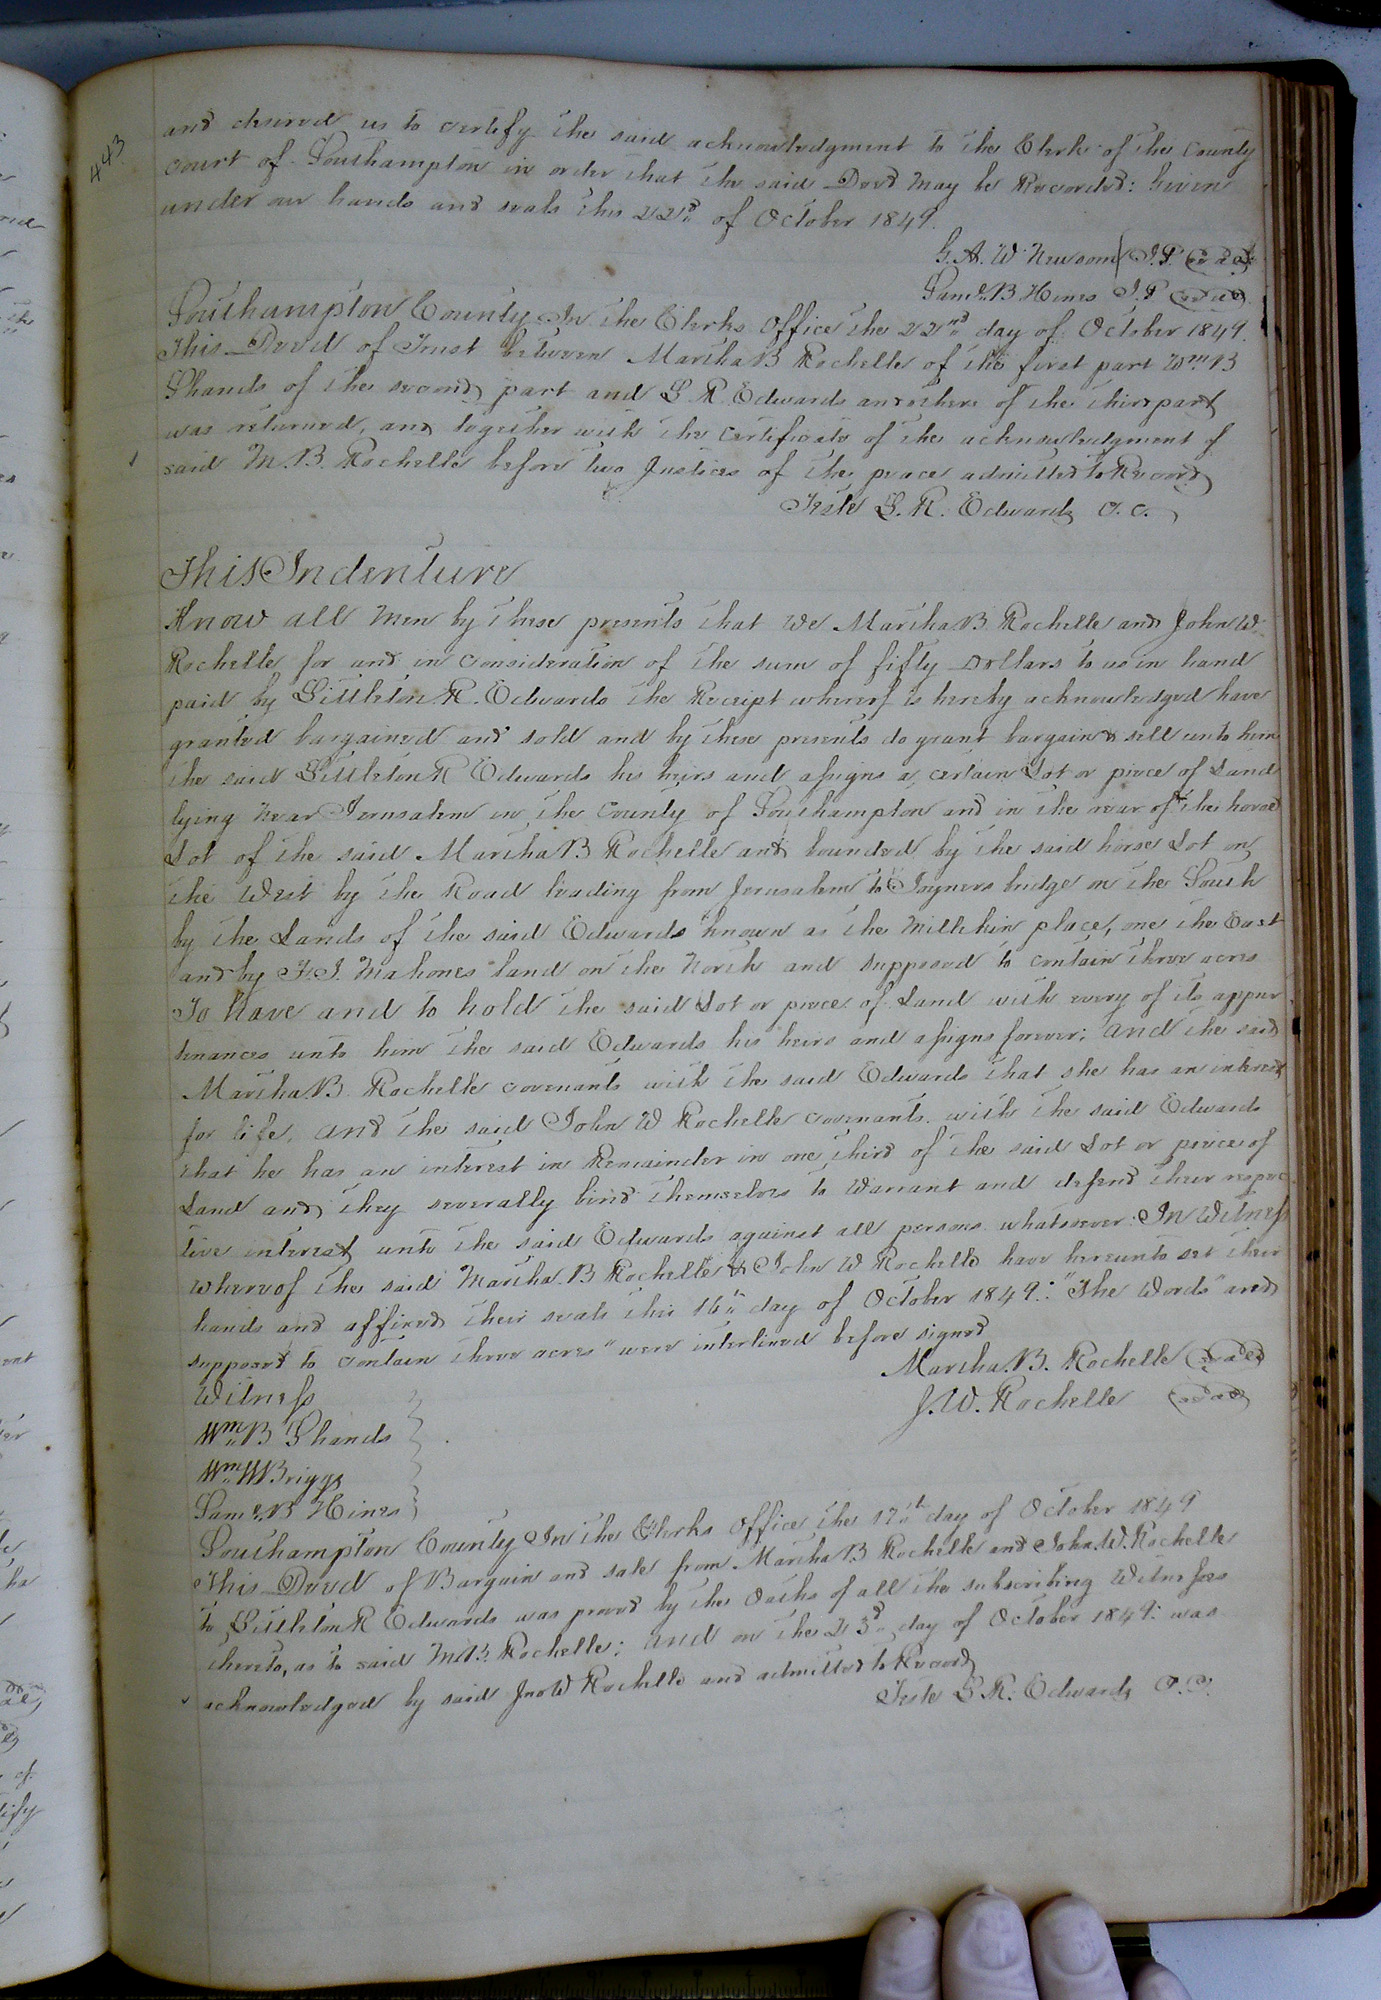 443
and desired us to certify the said acknowledgment to the Clerk of the County
Court of Southampton in order that the said Deed may be Recorded: Given
under our hands and seals this 22d of October 1849.
G. A. W. Newsom J.P. Seal
Saml. B Hines J.P Seal
Southampton County In the Clerks Office the 22nd day of October 1849.
This Deed of Trust between Martha B Rochelle of the first part Wm B
Shands of the second part and L R. Edwards and others of the third part
was returned, and together with the Certificate of the acknowledgment of
said M. B. Rochelle before two Justices of the peace admitted to Record
Teste L. R. Edwards C. C.
This Indenture
Know all men by these presents that We Martha B Rochelle and John W.
Rochelle for and in consideration of the sum of fifty Dollars to us in hand
paid by Littleton R. Edwards the Receipt whereof is hereby acknowledged have
granted bargained and sold and by these presents do grant bargain & sell unto him
the said Littleton R Edwards his heirs and assigns a certain Lot or piece of Land
lying near Jerusalem in the County of Southampton and in the rear of the horse
Lot of the said Martha B Rochelle and bounded by the said horse Lot on
the West by the Road leading from Jerusalem to Joyners bridge on the South
by the Lands of the said Edwards known as the Millikin place, one the East
and by F. J. Mahones land on the North and supposed to contain three acres
To have and to hold the said Lot or piece of Land with every of its appur
tenances unto him the said Edwards his heirs and assigns forever; And the said
Martha B. Rochelle covenants with the said Edwards that she has an interest
for life, and the said John W Rochelle covenants with the said Edwards
that he has an interest in Remainder in one third of the said Lot or peice of
Land and they severally bind themselves to Warrant and defend their respec
tive interest unto the said Edwards against all persons whatsoever: In Witness
whereof the said Martha B Rochelle & John W Rochelle have hereunto set their
hands and affixed their seals this 16th day of October 1849: "The Words" and
supposed to contain three acres" were interlined before signed
Martha B. Rochelle Seal
J. W. Rochelle Seal
Witness
Wm B Shands
Wm W Briggs
Saml. B Hines
Southampton County In the Clerks Office the 17th day of October 1849
This Deed of Bargain and sale from Martha B Rochelle and John W. Rochelle
to Littleton R Edwards was proved by the Oaths of all the subscribing Witnesses
thereto, as to said M B. Rochelle; and on the 23d day of October 1849: was
acknowledged by said Jno W Rochelle and admitted to Record
Teste L R. Edwards C. C.